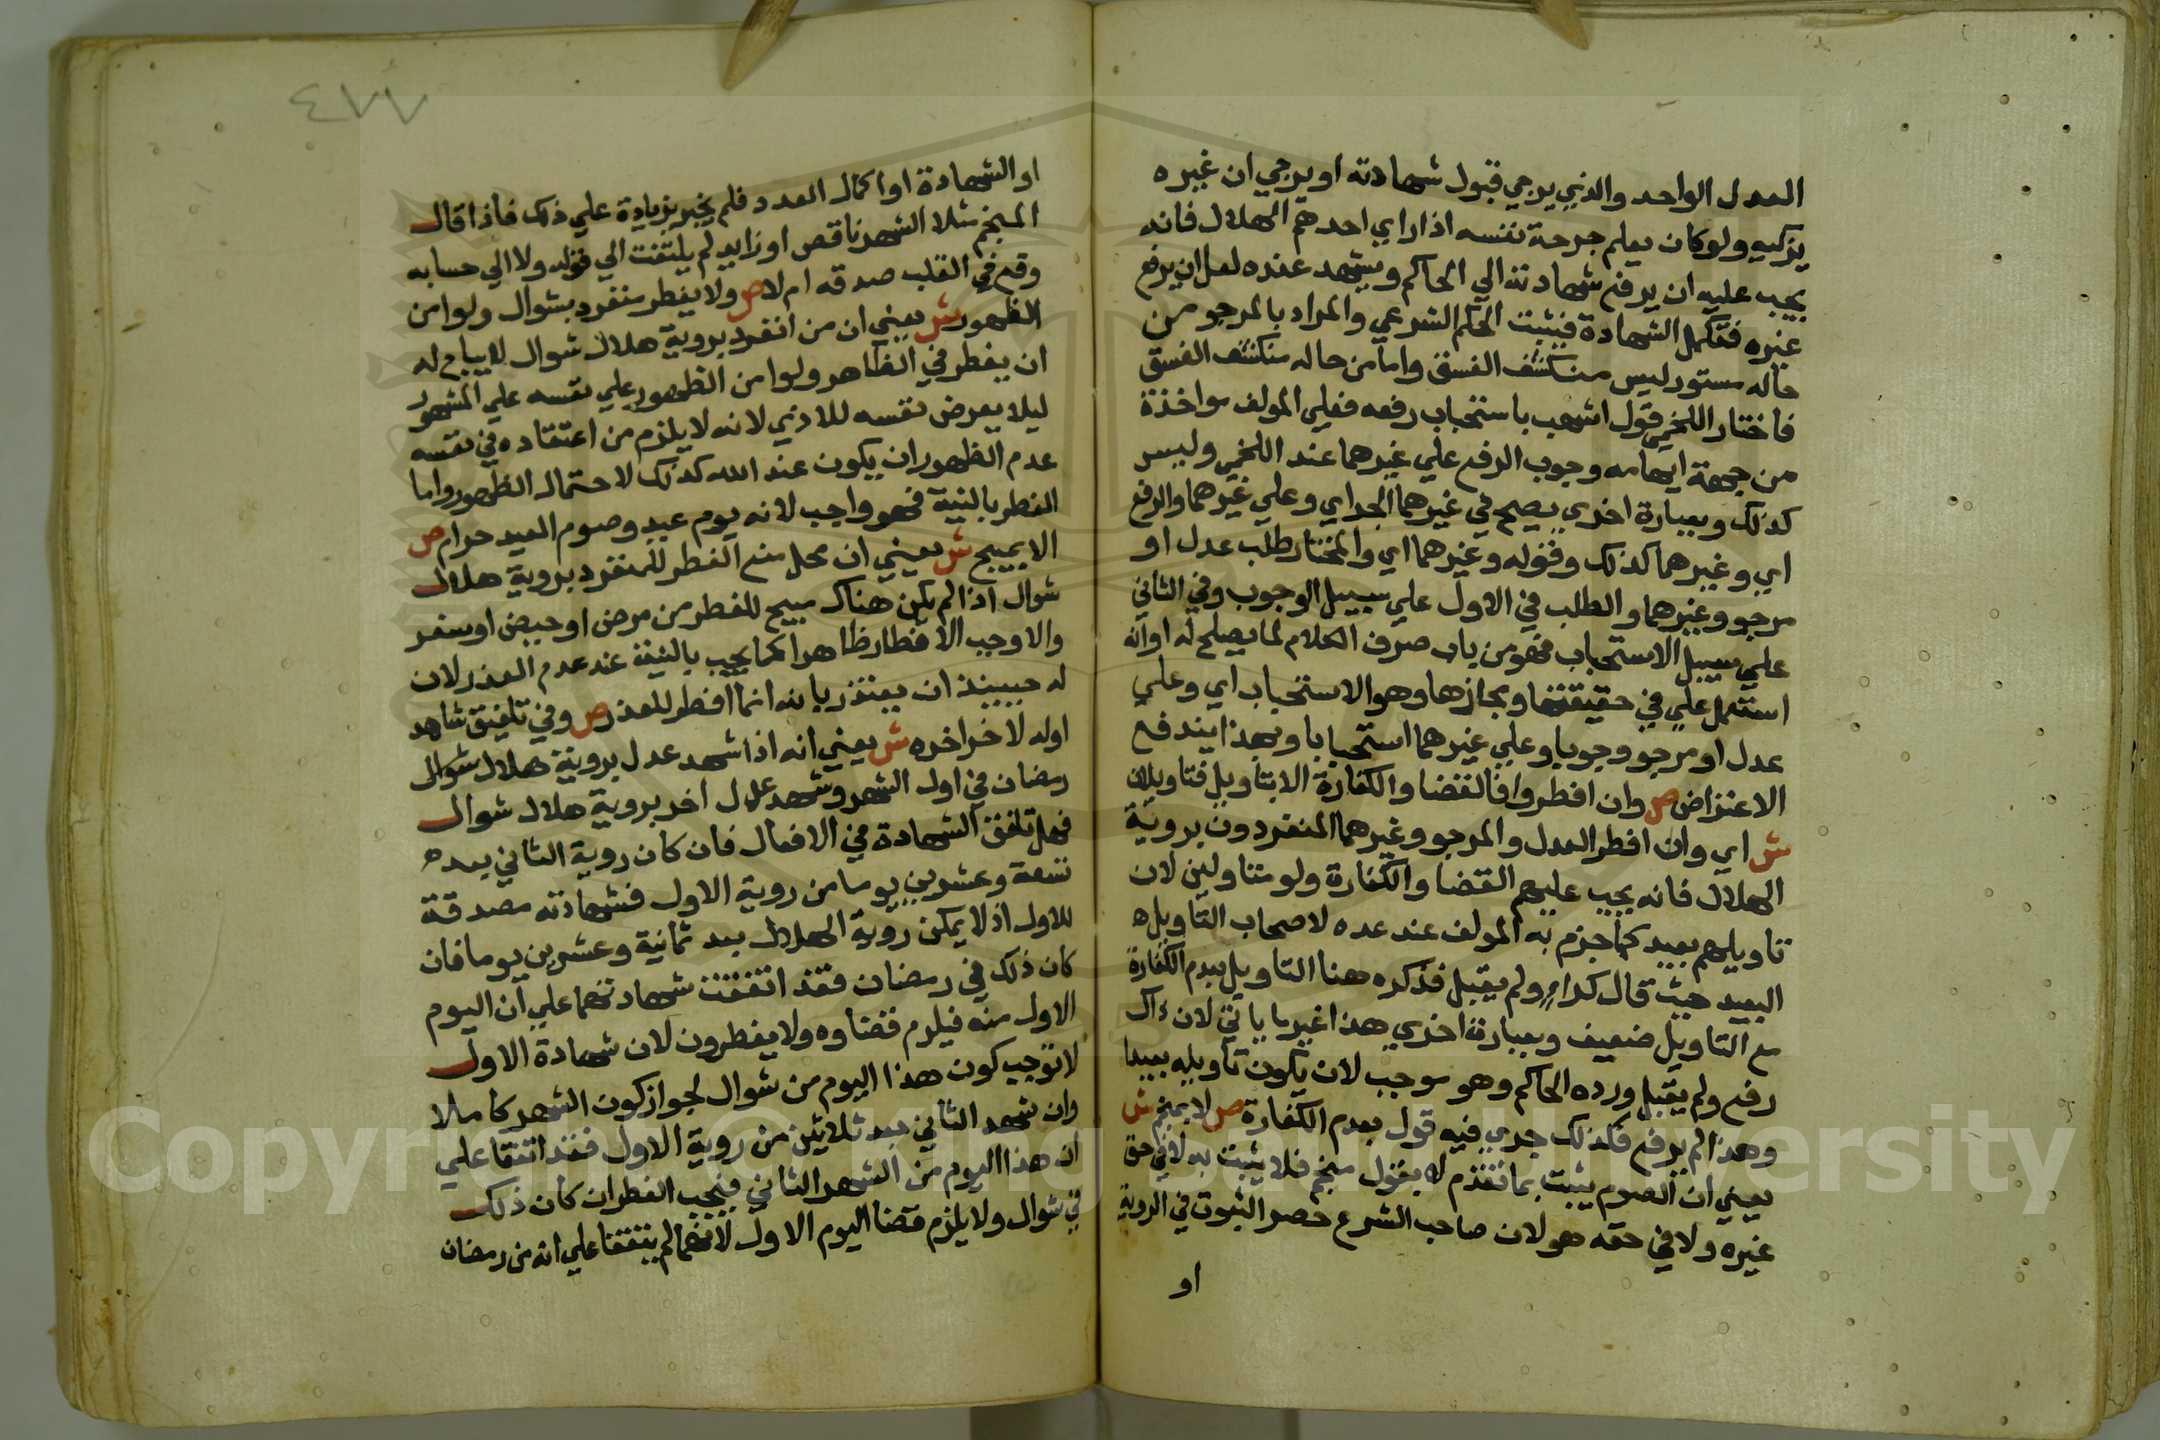 العدل الواحد والذي يرجي قبول شهادته او يرجي ان غيره
يزكيه ولو كان يعلم جرحة نفسه اذا راي احدهم الهلال فانه
يجب عليه ان يرفع شهادته الي الحاكم ويشهد عنده لعل ان يرفع
غيره فتكمل الشهادة فيثبت الحكم الشرعي والمراد بالمرجو من
حاله مستور ليس منكشف الفسق واما من حاله منكشف الفسق
فاختار اللخمي قول اشهب باستحباب رفعه فعلي المولف مواخذة
من جهة ايهامه وجوب الرفع علي غيرهما عند اللخمي وليس
كذلك وبعبارة اخري يصح في غيرهما الجر اي وعلي غيرهما والرفع
اي وغيرهما كذلك وقوله وغيرهما اي والمختار طلب عدل او
مرجو وغيرهما والطلب في الاول علي سبيل الوجوب وفي الثاني
علي سبيل الاستحباب فهو من باب صرف الكلام لما يصلح له او انه
استعمل علي في حقيقتها ومجازها وهو الاستحباب اي وعلي
عدل او مرجو وجوبا وعلي غيرهما استحبابا وبهذا يندفع
الاعتراض ص وان افطروا فالقضا والكفارة الا بتاويل فتاويلان
ش اي وان افطر العدل والمرجو وغيرهما المنفردون بروية
الهلال فانه يجب عليهم القضا والكفارة ولو متاولين لان
تاويلهم بعيد كما جزم به المولف عند عده لاصحاب التاويل
البعيد حيث قال كراء ولم يقبل فذكره هنا التاويل بعدم الكفارة
مع التاويل ضعيف وبعبارة اخري هذا غير ما ياتي لان ذاك
رفع ولم يقبل ورده الحاكم وهو موجب لان يكون تاويله بعيدا
وهذا لم يرفع فلذلك جري فيه قول بعدم الكفارة ص لا بمنجم ش
يعني ان الصوم يثبت بما تقدم لا بقول منجم فلا يثبت به لا في حق
غيره ولا في حقه هو لان صاحب الشرع حصر الثبوت في الروية
او
٤٧٧
او الشهادة او اكمال العدد فلم يخبر بزيادة علي ذلك فاذا قال
المنجم مثلا الشهر ناقص او زايد لم يلتفت الي قوله ولا الي حسابه
وقع في القلب صدقه ام لا ص ولا يفطر منفرد بشوال ولو امن
الظهور ش يعني ان من انفرد بروية هلال شوال لا يباح له
ان يفطر في الظاهر ولو امن الظهور علي نفسه علي المشهور
ليلا يعرض نفسه للاذي لانه لا يلزم من اعتقاده في نفسه
عدم الظهور ان يكون عند الله كذلك لاحتمال الظهور واما
الفطر بالنية فهو واجب لانه يوم عيد وصوم العيد حرام ص
الا بمبيح ش يعني ان محل منع الفطر للمنفرد بروية هلال
شوال اذا لم يكن هناك مبيح للفطر من مرض او حيض او سفر
والا وجب الافطار ظاهرا كما يجب بالنية عند عدم العذر لان
له حينيذ ان يعتذر بانه انما افطر للعذر ص وفي تلفيق شاهد
اوله لاخر اخره ش يعني انه اذا شهد عدل بروية هلال شوال
رمضان في اول الشهر وشهد عدل اخر بروية هلال شوال
فهل تلفق الشهادة في الافعال فان كان روية الثاني بعد
تسعة وعشرين يوما من روية الاول فشهادته مصدقة
للاول اذ لا يمكن روية الهلال بعد ثمانية وعشرين يوما فان
كان ذلك في رمضان فقد اتفقت شهادتهما علي ان اليوم
الاول منه فيلزم قضاوه ولا يفطرون لان شهادة الاول
لا توجب كون هذا اليوم من شوال لجواز كون الشهر كاملا
وان شهد الثاني بعد ثلاثين من روية الاول فقد اتفقا علي
ان هذا اليوم من الشهر الثاني فيجب الفطر ان كان ذلك
في شوال ولا يلزم قضا اليوم الاول لانهما لم يتفقا علي انه من رمضان
Copyright © King Saud University